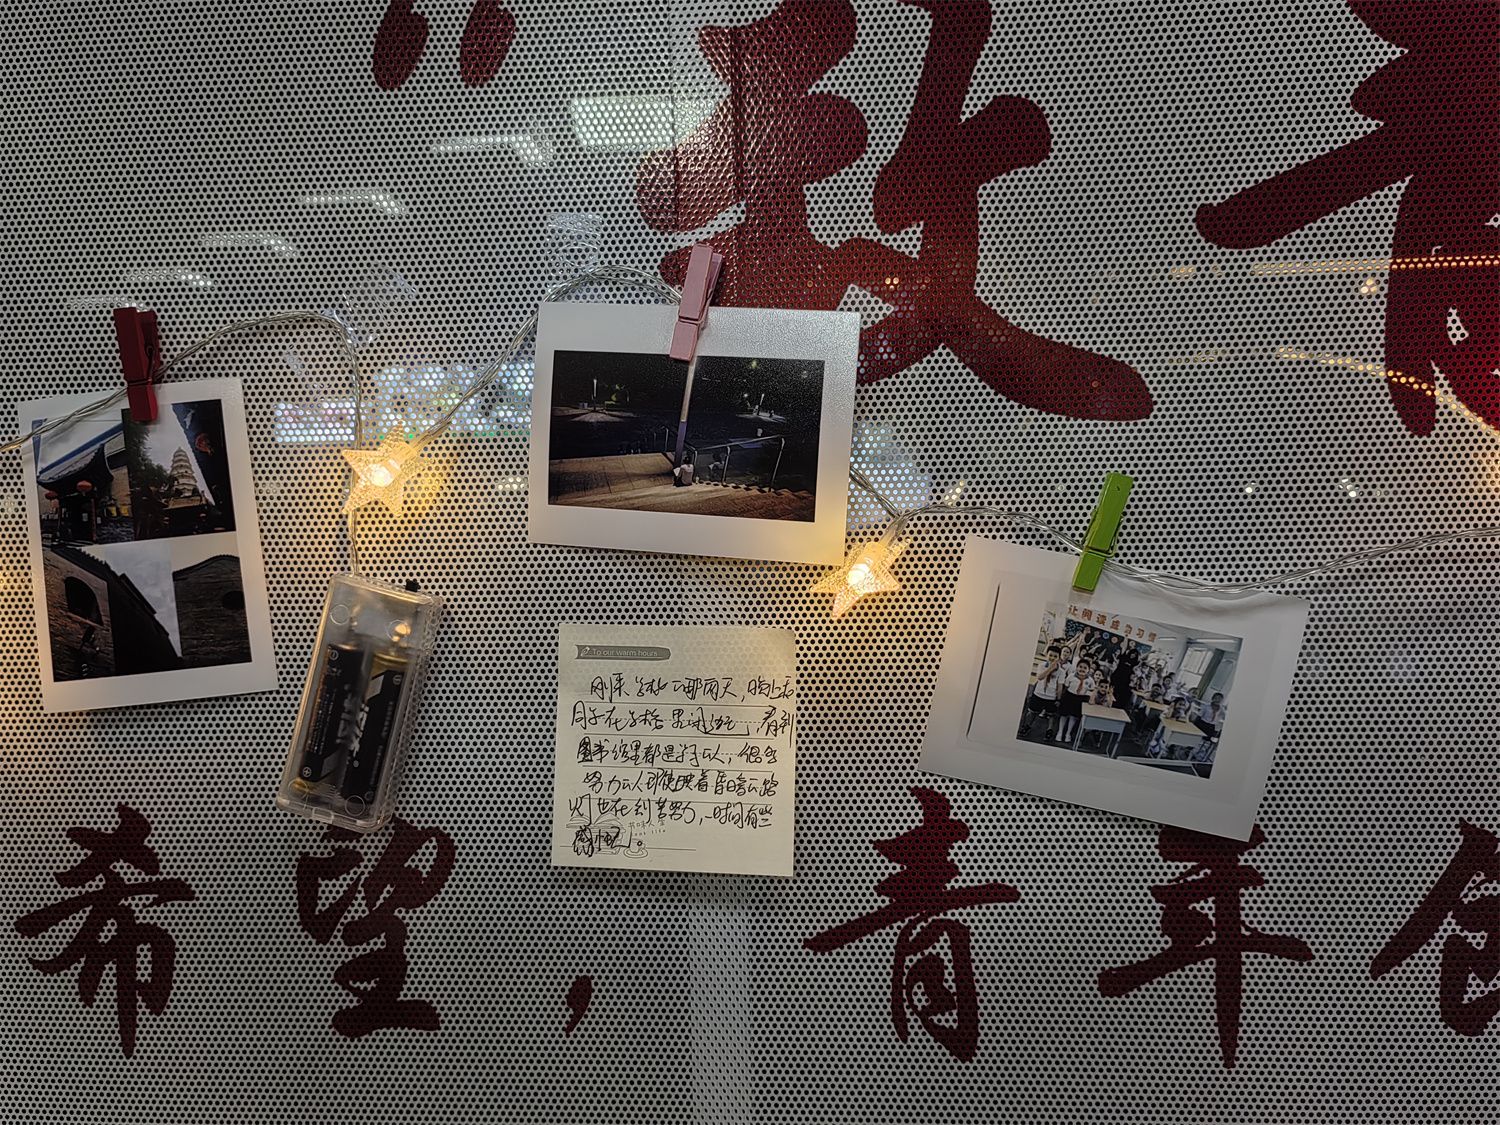 “致青
让阅读成为习惯
To our warm hours
刚来学校的那两天，晚上和
同学在学校里闲逛，看到
图书馆里都是学习的人，很多
努力的人即使映着昏暗的路
灯也在刻苦努力，一时间有些
感慨。
希望，青年创